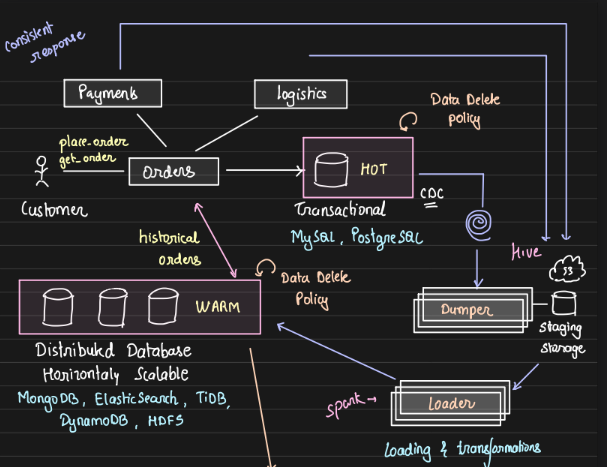 consistent
response
Payments
Logistics
Data Delete
policy
place-order
get_order
Orders
HOT
CDC
Customer
Transactional
MySQL, PostgreSQL
historical
orders
Hive
S3
Data Delete
Policy
WARM
Dumper
staging
storage
Distributed Database
Horizontaly Scalable
MongoDB, ElasticSearch, TiDB,
DynamoDB, HDFS
spark→
Loader
Loading & transformations